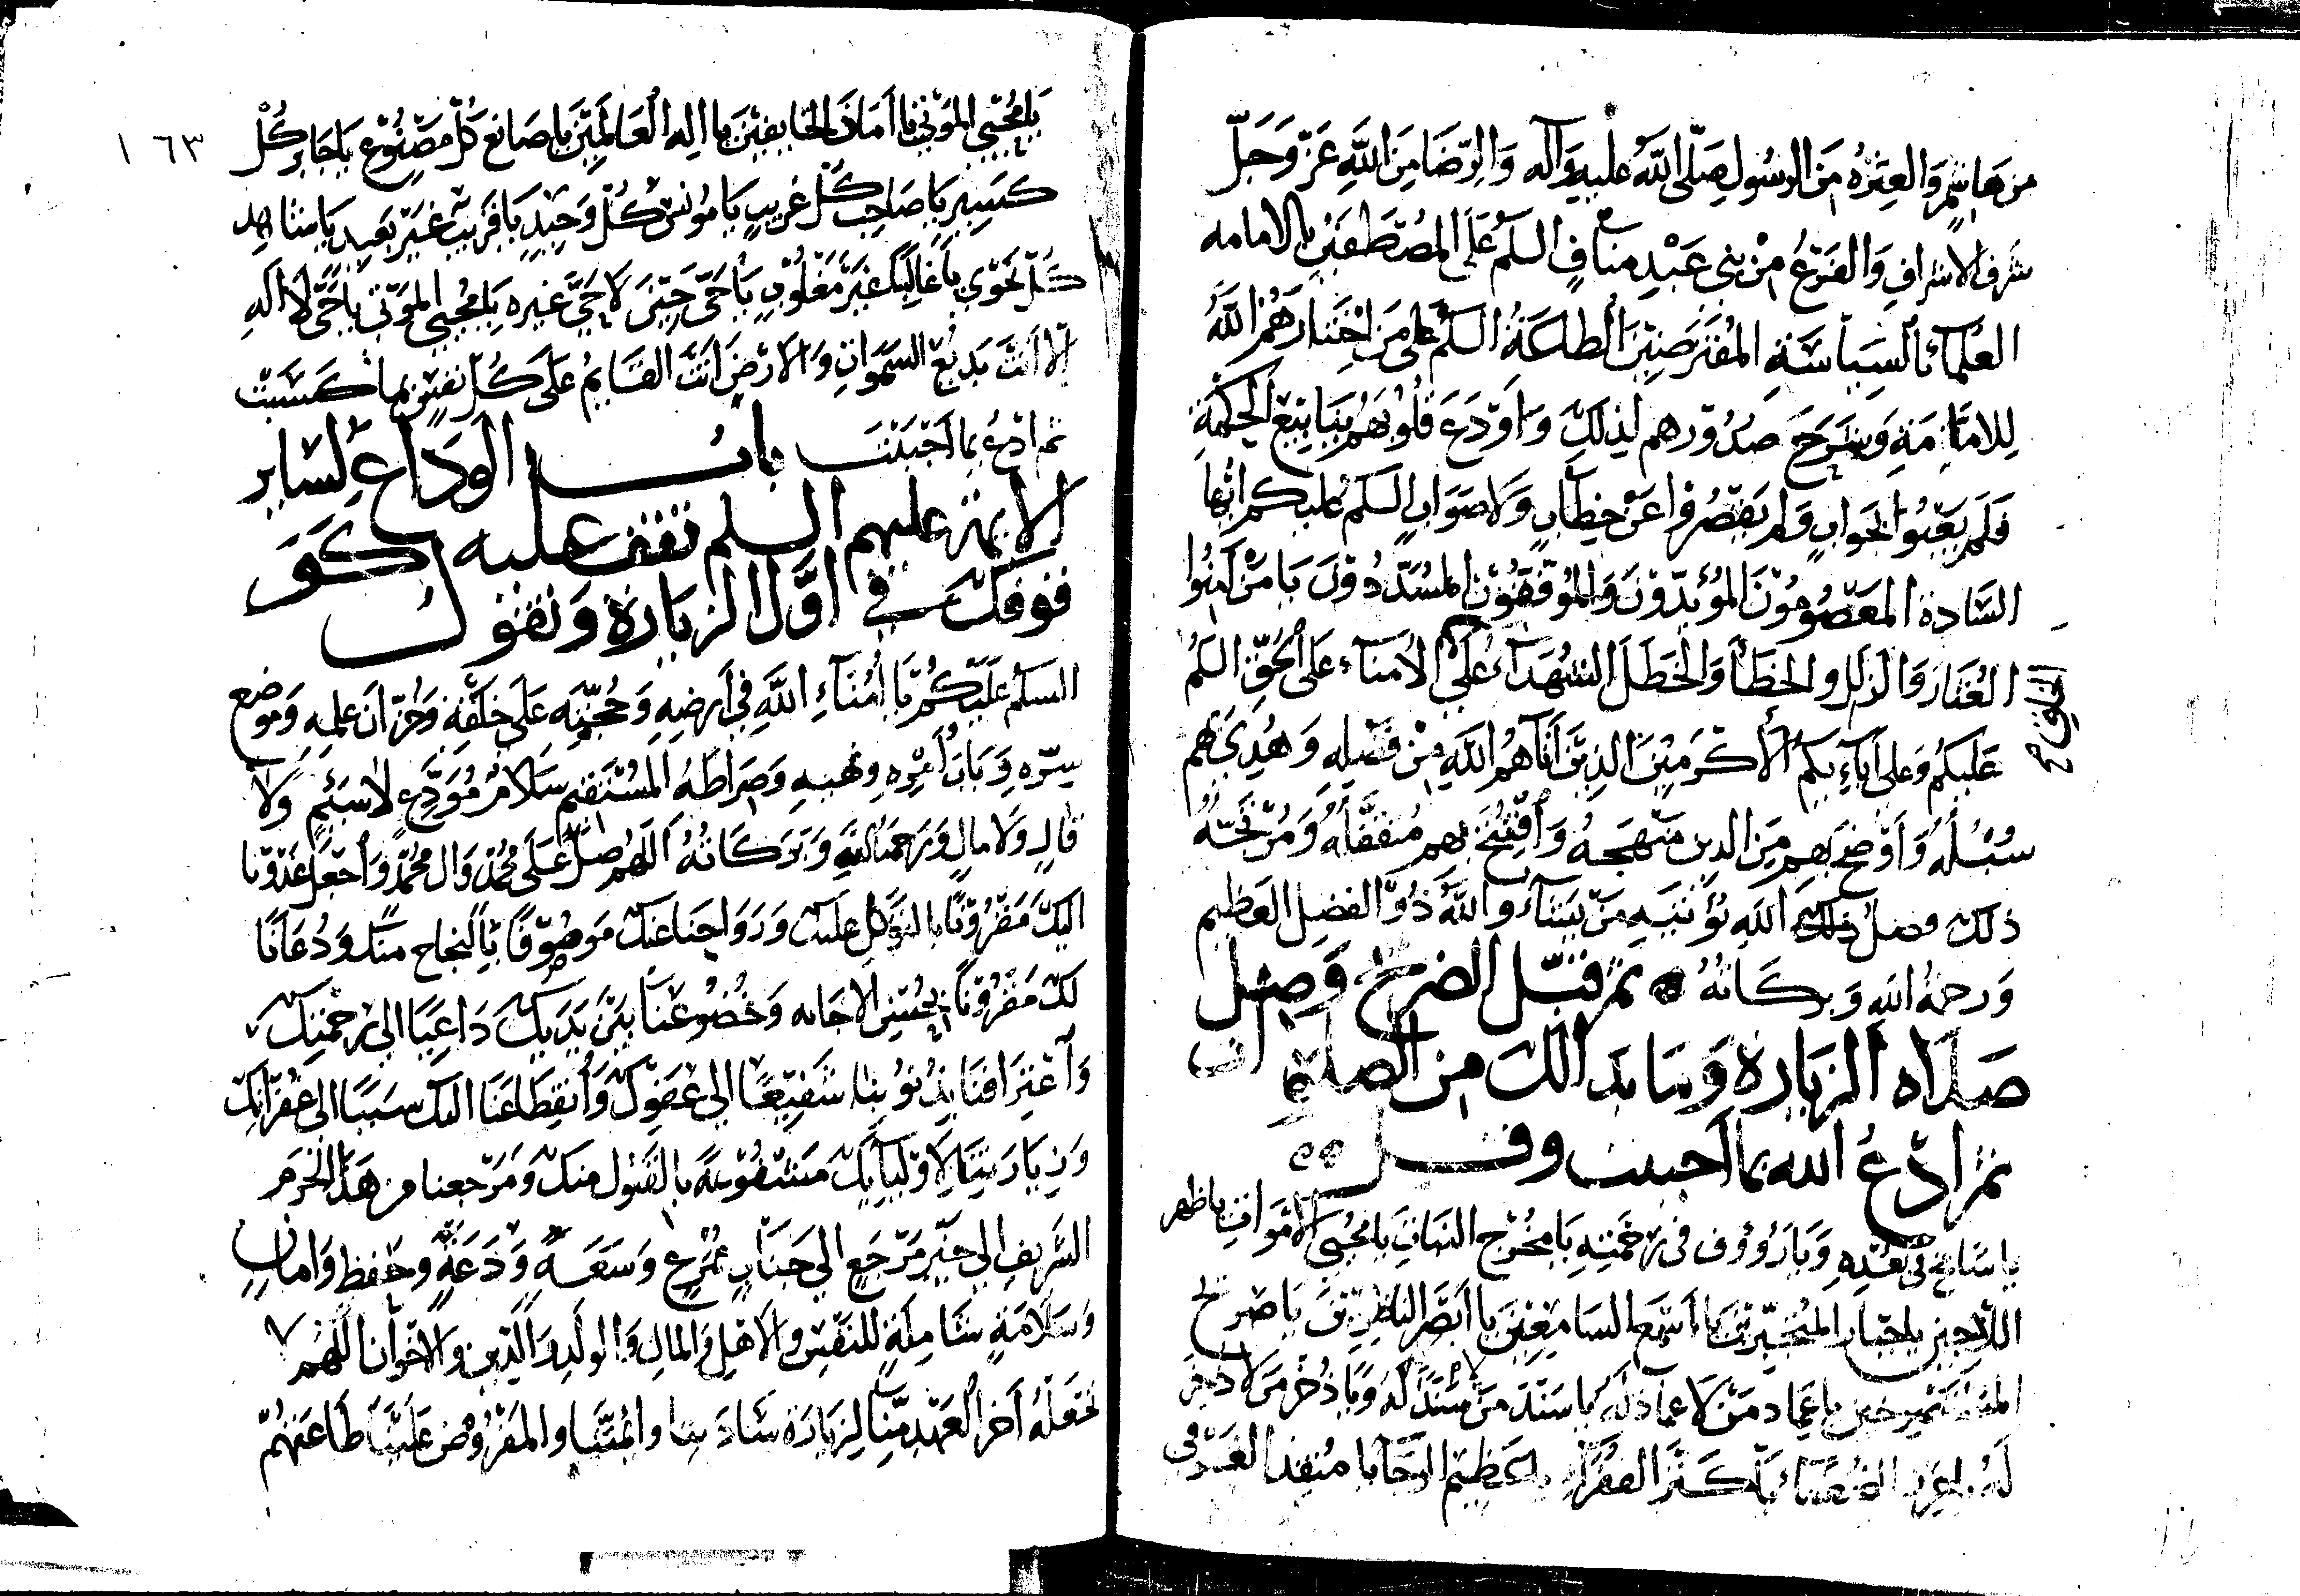 من هاشم والعترة من الرسول صلى الله عليه وآله والرضا من الله عز وجل
شرف الاشراف والفرع من بني عبد مناف السلم على المصطفين بالامامه
العلماء بالسياسة المفترضين الطاعة السلم على من اختارهم الله
للامامة وشرح صدورهم لذلك واودع قلوبهم ينابيع الحكمة
فلم يعيوا بجواب ولم يقصروا عن خطاب ولا صواب السلم عليكم ايها
السادة المعصومون المؤيدون والموفقون المسددون يا من آمنوا
العثار والزلل والخطأ والخطل الشهداء على الامناء على الحق السلم
الخلق
عليكم وعلى آبائكم الاكرمين الذين اتاهم الله من فضله وهدى بهم
سبله واوضح بهم من الدين منهجه وافتتح بهم مقفله ومرتجه
ذلك فضل الله يؤتيه من يشاء والله ذو الفضل العظيم
ورحمة الله وبركاته ثم قبل الضريح وصل
صلاه الزيارة وما بدا لك من الصلاة
ثم ادع الله بما احببت وقل
يا رؤوف في رحمته يا مخرج النبات يا محيي الاموات يا ظهر
اللاجين يا جار المستجيرين يا اسمع السامعين يا ابصر الناظرين يا صريخ
المستصرخين يا عماد من لا عماد له يا سند من لا سند له ويا ذخر من لا ذخر
له الضعفاء يا كنز الفقراء يا عظيم الرجا يا منقذ الغرقى
١٦٣
يا محيي الموتى يا امان الخايفين يا اله العالمين يا صانع كل مصنوع يا جابر كل
كسير يا صاحب كل غريب يا مونس كل وحيد يا قريب غير بعيد يا شاهد
كل نجوى يا غالبا غير مغلوب يا حي حين لا حي غيره يا محيي الموتى يا حي لا اله
الا انت بديع السموات والارض انت القايم على كل نفس بما كسبت
ثم ادع بما احببت باب الوداع لساير
الايمة عليهم السلم تقف عليه كو
قوفك في اول الزيارة وتقول
السلم عليكم يا امناء الله في ارضه وحججه على خلقه وخزان علمه وموضع
سره وباب امره ونهيه وصراطه المستقيم سلام مودع لا سئم ولا
قال ولا مال ورحمة الله وبركاته اللهم صل على محمد وال محمد واجعل غدونا
اليك مقرونا بالتوكل عليك ورواحنا عنك موصوفا بالنجاح منك ودعانا
لك مقرونا بحسن الاجابه وخضوعنا بين يديك داعيا الى رحمتك
واعترافنا بذنوبنا شفيعا الى عفوك وانقطاعنا اليك سببا الى غفرانك
وزيارتنا لاوليائك مشفوعة بالقبول منك ومرجعنا من هذا الحرم
الشريف الى خير مرجع الى جناب ممرع وسعة ودعة وحفظ وامان
وسلامة شاملة للنفس والاهل والمال والولد والدين والاخوان اللهم لا
تجعله آخر العهد منا لزيارة ساداتنا وائمتنا والمفروض علينا طاعتهم